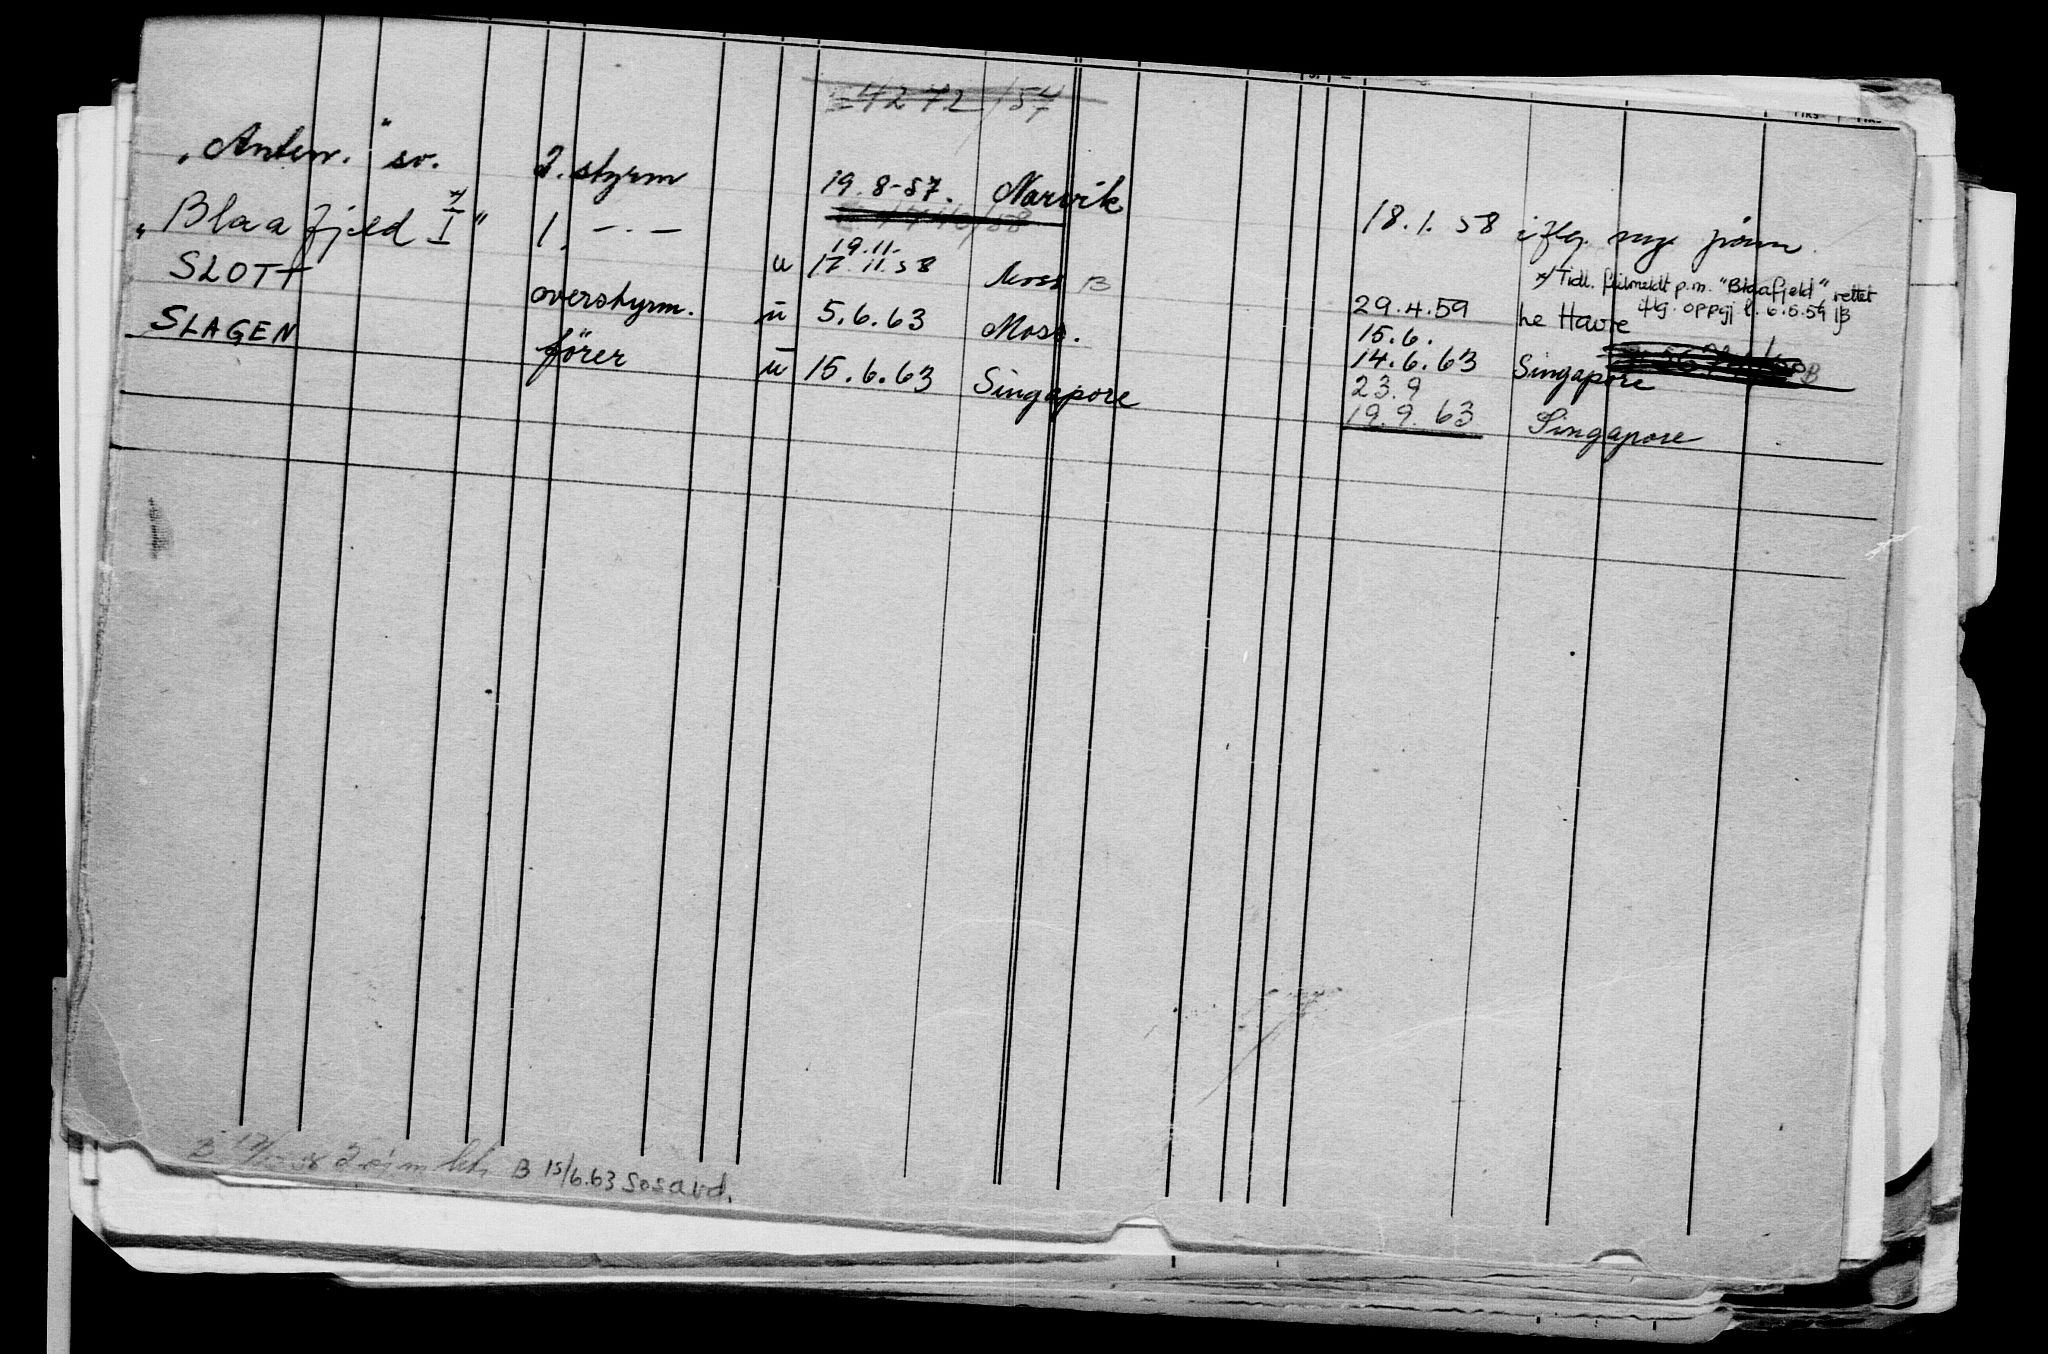 4272/54
"Anten." sv. 2. styrm 19.8-57. Narvik 18.1.58 iflg. mye
"Blaafjeld I" *) 1. -·- u 19.11. 17.11.58 Moss B 29.4.59 Le Havre
*) Tidl. feilmeldt p.m. "Blaafjeld", rettet
iflg. oppgj. 6.5.59 B
SLOTT overstyrm. u 5.6.63 Moss. 15.6. 14.6.63 Singapore B
SLAGEN fører u 15.6.63 Singapore 23.9 19.9.63 Singapore
B B 15/6.63 Sosavd.